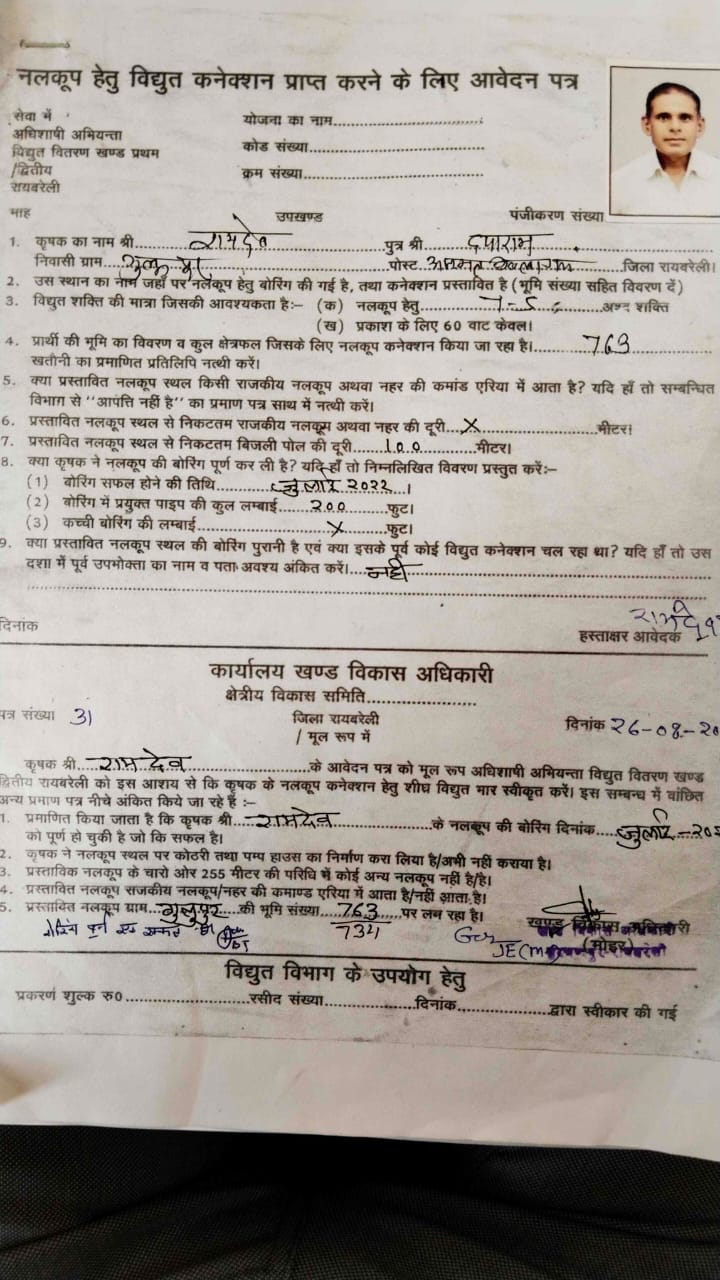 नलकूप हेतु विद्युत कनेक्शन प्राप्त करने के लिए आवेदन पत्र
सेवा में
योजना का नाम
अधिशाषी अभियन्ता
कोड संख्या
विद्युत वितरण खण्ड प्रथम
/द्वितीय
क्रम संख्या
रायबरेली
माह उपखण्ड पंजीकरण संख्या
1. कृषक का नाम श्री रामदेव पुत्र श्री दयाराम
निवासी ग्राम पोस्ट जिला रायबरेली।
2. उस स्थान का नाम जहाँ पर नलकूप हेतु बोरिंग की गई है, तथा कनेक्शन प्रस्तावित है (भूमि संख्या सहित विवरण दें)
3. विद्युत शक्ति की मात्रा जिसकी आवश्यकता है:– (क) नलकूप हेतु 7-5 अश्व शक्ति
(ख) प्रकाश के लिए 60 वाट केवल।
4. प्रार्थी की भूमि का विवरण व कुल क्षेत्रफल जिसके लिए नलकूप कनेक्शन किया जा रहा है। 763
खतौनी का प्रमाणित प्रतिलिपि नत्थी करें।
5. क्या प्रस्तावित नलकूप स्थल किसी राजकीय नलकूप अथवा नहर की कमांड एरिया में आता है? यदि हाँ तो सम्बन्धित
विभाग से "आपत्ति नहीं है" का प्रमाण पत्र साथ में नत्थी करें।
6. प्रस्तावित नलकूप स्थल से निकटतम राजकीय नलकूप अथवा नहर की दूरी X मीटर।
7. प्रस्तावित नलकूप स्थल से निकटतम बिजली पोल की दूरी 100 मीटर।
8. क्या कृषक ने नलकूप की बोरिंग पूर्ण कर ली है? यदि हाँ तो निम्नलिखित विवरण प्रस्तुत करें:–
(1) बोरिंग सफल होने की तिथि जुलाई २०२२।
(2) बोरिंग में प्रयुक्त पाइप की कुल लम्बाई २०० फुट।
(3) कच्ची बोरिंग की लम्बाई X फुट।
9. क्या प्रस्तावित नलकूप स्थल की बोरिंग पुरानी है एवं क्या इसके पूर्व कोई विद्युत कनेक्शन चल रहा था? यदि हाँ तो उस
दशा में पूर्व उपभोक्ता का नाम व पता अवश्य अंकित करें। नहीं
रामदेव
दिनांक हस्ताक्षर आवेदक
कार्यालय खण्ड विकास अधिकारी
क्षेत्रीय विकास समिति
पत्र संख्या 31 जिला रायबरेली दिनांक 26-08-20
/ मूल रूप में
कृषक श्री रामदेव के आवेदन पत्र को मूल रूप अधिशाषी अभियन्ता विद्युत वितरण खण्ड
द्वितीय रायबरेली को इस आशय से कि कृषक के नलकूप कनेक्शन हेतु शीघ्र विद्युत भार स्वीकृत करें। इस सम्बन्ध में वांछित
अन्य प्रमाण पत्र नीचे अंकित किये जा रहे हैं :–
1. प्रमाणित किया जाता है कि कृषक श्री रामदेव के नलकूप की बोरिंग दिनांक जुलाई-२०२
को पूर्ण हो चुकी है जो कि सफल है।
2. कृषक ने नलकूप स्थल पर कोठरी तथा पम्प हाउस का निर्माण करा लिया है/अभी नहीं कराया है।
3. प्रस्ताविक नलकूप के चारो ओर 255 मीटर की परिधि में कोई अन्य नलकूप नहीं है/है।
4. प्रस्तावित नलकूप राजकीय नलकूप/नहर की कमाण्ड एरिया में आता है/नहीं आता है।
5. प्रस्तावित नलकूप ग्राम गुलूपुर की भूमि संख्या 763 पर लग रहा है।
734
खण्ड विकास अधिकारी
(मोहर)
JE(M
विद्युत विभाग के उपयोग हेतु
प्रकरण शुल्क रु0 रसीद संख्या दिनांक द्वारा स्वीकार की गई